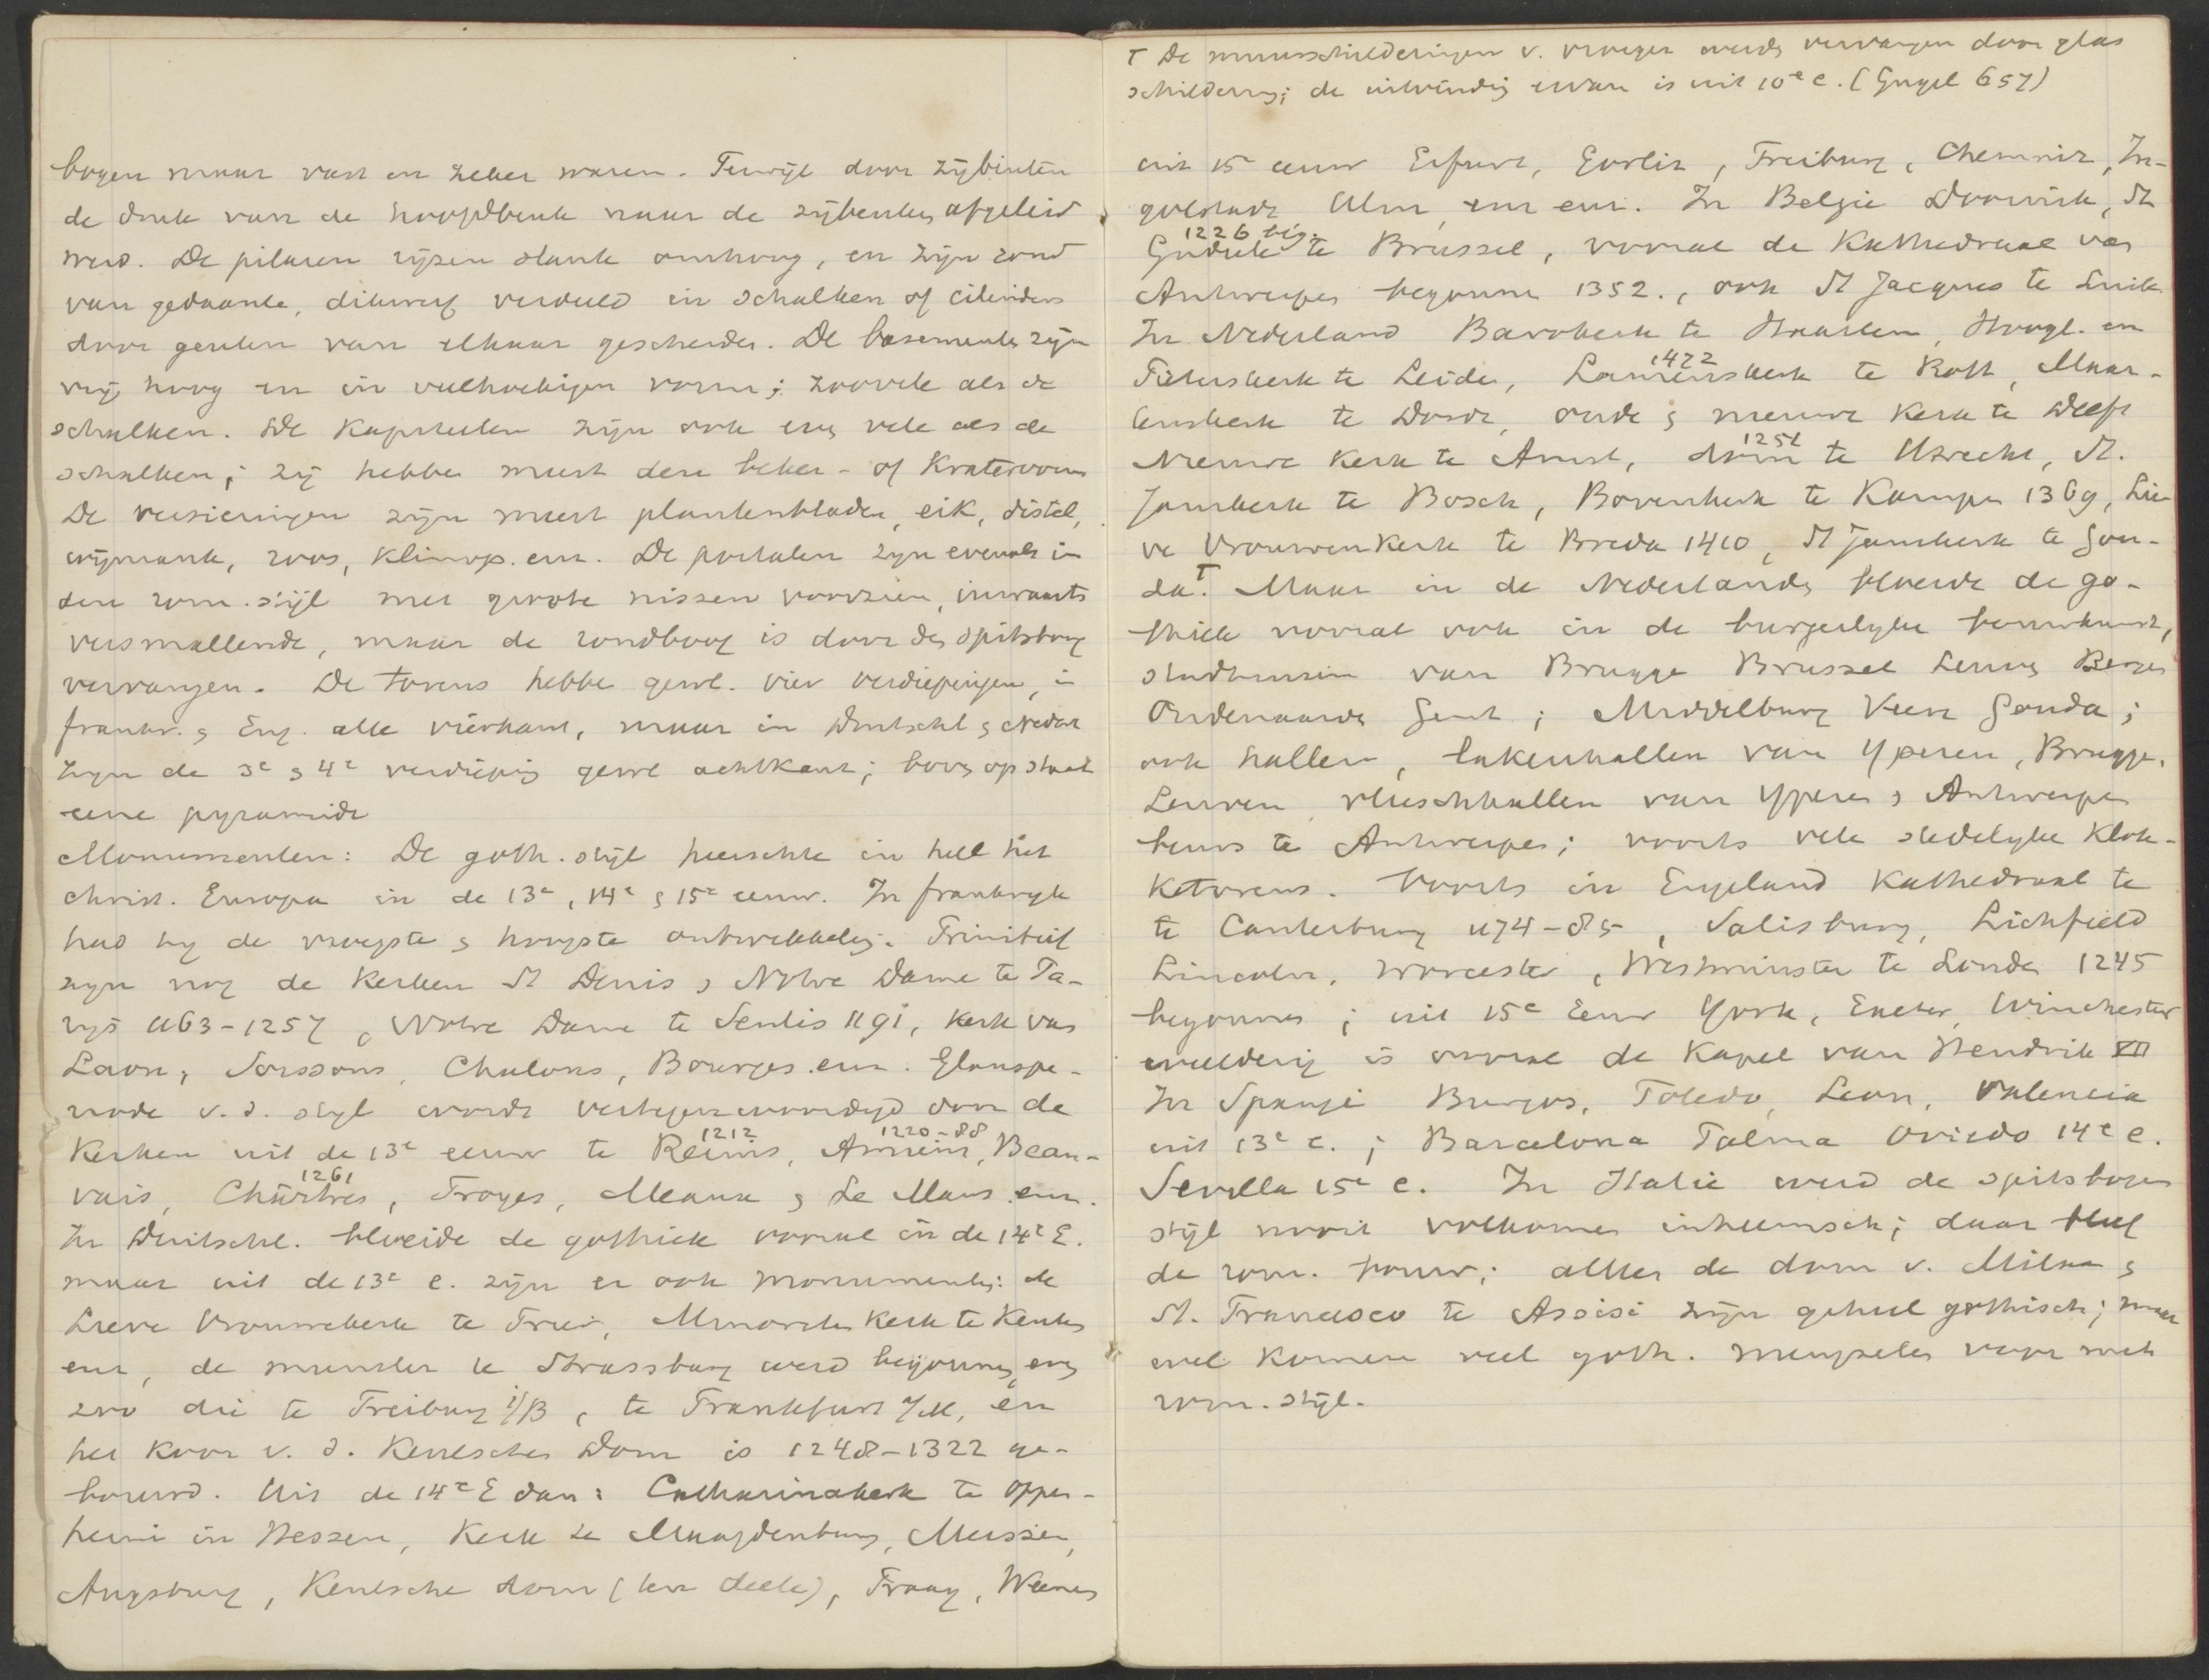 bogen maar vast en zeker waren. Terwijl door zijbinten
de druk van de hoofdbeuk naar de zijbeuken afgeleid
werd. De pilaren rijzen slank omhoog, en zijn rond
van gedaante, dikwerf verdeeld in schalken of cilinders
door geulen van elkaar gescheiden. De basementen zijn
vrij hoog en in veelhoekigen vorm; zoovele als de
schalken. De Kapiteelen zijn ook even vele als de
schalken; zij hebben meest den beker- of Kratervorm
De versieringen zijn meest plantenbladen, eik, distel,
wijnrank, roos, klimop. enz. De portalen zijn evenals in
den rom. stijl met groote nissen voorzien, inwaarts
versmallende, maar de rondboog is door den spitsboog
vervangen. De torens hebben gewl. vier verdiepingen, in
frankr. & Eng. alle vierkant, maar in Duitschl & Nederl
zijn de 3e & 4e verdieping gewl achtkant; boven op staat
eene pyramide
Monumenten: De goth. stijl heerschte in heel het
christ. Europa in de 13e, 14e & 15e eeuw. In frankryk
had hy de vroegste & hoogste ontwikkeling. Primitief
zyn nog de Kerken St Denis & Notre Dame te Pa-
rijs 1163-1257, Notre Dame te Senlis 1191, Kerk van
Laon, Soissons, Chalons, Bourges enz. Glanspe-
riode v. d. styl wordt vertegenwoordigd door de
Kerken uit de 13e eeuw te Reims 1212, Amiens 1220-88, Beau-
vais, Chartres 1261, Troyes, Meaux & Le Mans enz.
In Duitschl. bloeide de gothiek vooral in de 14e E.
maar uit de 13e e. zijn er ook monumenten: de
Lieve Vrouwekerk te Trier, Minorieten Kerk te Keulen
enz, de munster te Strassburg werd begonnen, even
zoo die te Freiburg i/B, te Frankfurt a/M, en
het Koor v. d. Keulschen Dom is 1248-1322 ge-
bouwd. Uit de 14e E dan: Catharinakerk te Oppen-
heim in Hessen, Kerk te Maagdenburg, Meissen,
Augsburg, Keulsche dom (ten deele), Praag, Weenen
┬ De muurschilderingen v. vroeger werden vervangen door glas
schildering; de uitvinding ervan is uit 10e e. (Gugel 657)
uit 15e eeuw Erfurt, Gorlitz, Freiburg, Chemnitz, In-
golstadt, Ulm, enz enz. In Belgie Doornik, St
Gudule 1226 beg. te Brussel, vooral de Kathedraal van
Antwerpen begonnen 1352., ook St Jacques te Luik
In Nederland Bavokerk te Haarlem, Hoogl. en
Pieterskerk te Leiden, Laurenskerk 1422 te Rott, Maar-
tenskerk te Dordr, oude & nieuwe Kerk te Delft
Nieuwe Kerk te Amst, dom 1254 te Utrecht, St.
Janskerk te Bosch, Bovenkerk te Kampen 1369, Lie-
ve Vrouwenkerk te Breda 1410, St Janskerk te Gou-
da.┬ Maar in de Nederlanden bloeide de go-
thiek vooral ook in de burgerlyke bouwkunst,
stadhuizen van Brugge Brussel Leuven Bergen
Oudenaarde Gent; Middelburg Veere Gouda;
ook hallen, lakenhallen van Yperen, Brugge,
Leuven, vleeschhallen van Yperen & Antwerpen
beurs te Antwerpen; voorts vele stedelyke Klok-
Ketorens. Voorts in Engeland Kathedraal te
te Canterbury 1174-85, Salisbury, Lichfield
Lincoln, Worcester, Westminster te Londen 1245
begonnen; uit 15e Eeuw York, Exeter, Winchester
weelderig is vooral de Kapel van Hendrik VII
In Spanje Burgos, Toledo, Leon, Valencia
uit 13e e.; Barcelona Palma Oviedo 14e e.
Sevilla 15e e. In Italie werd de spitsbogen
stijl nooit volkomen inheemsch; daar bleef
de rom. bouw; alleen de dom v. Milaan &
St. Francisco te Assisi zijn geheel gothisch; maar
wel komen veel goth. mengselen voor met
rom. stijl.